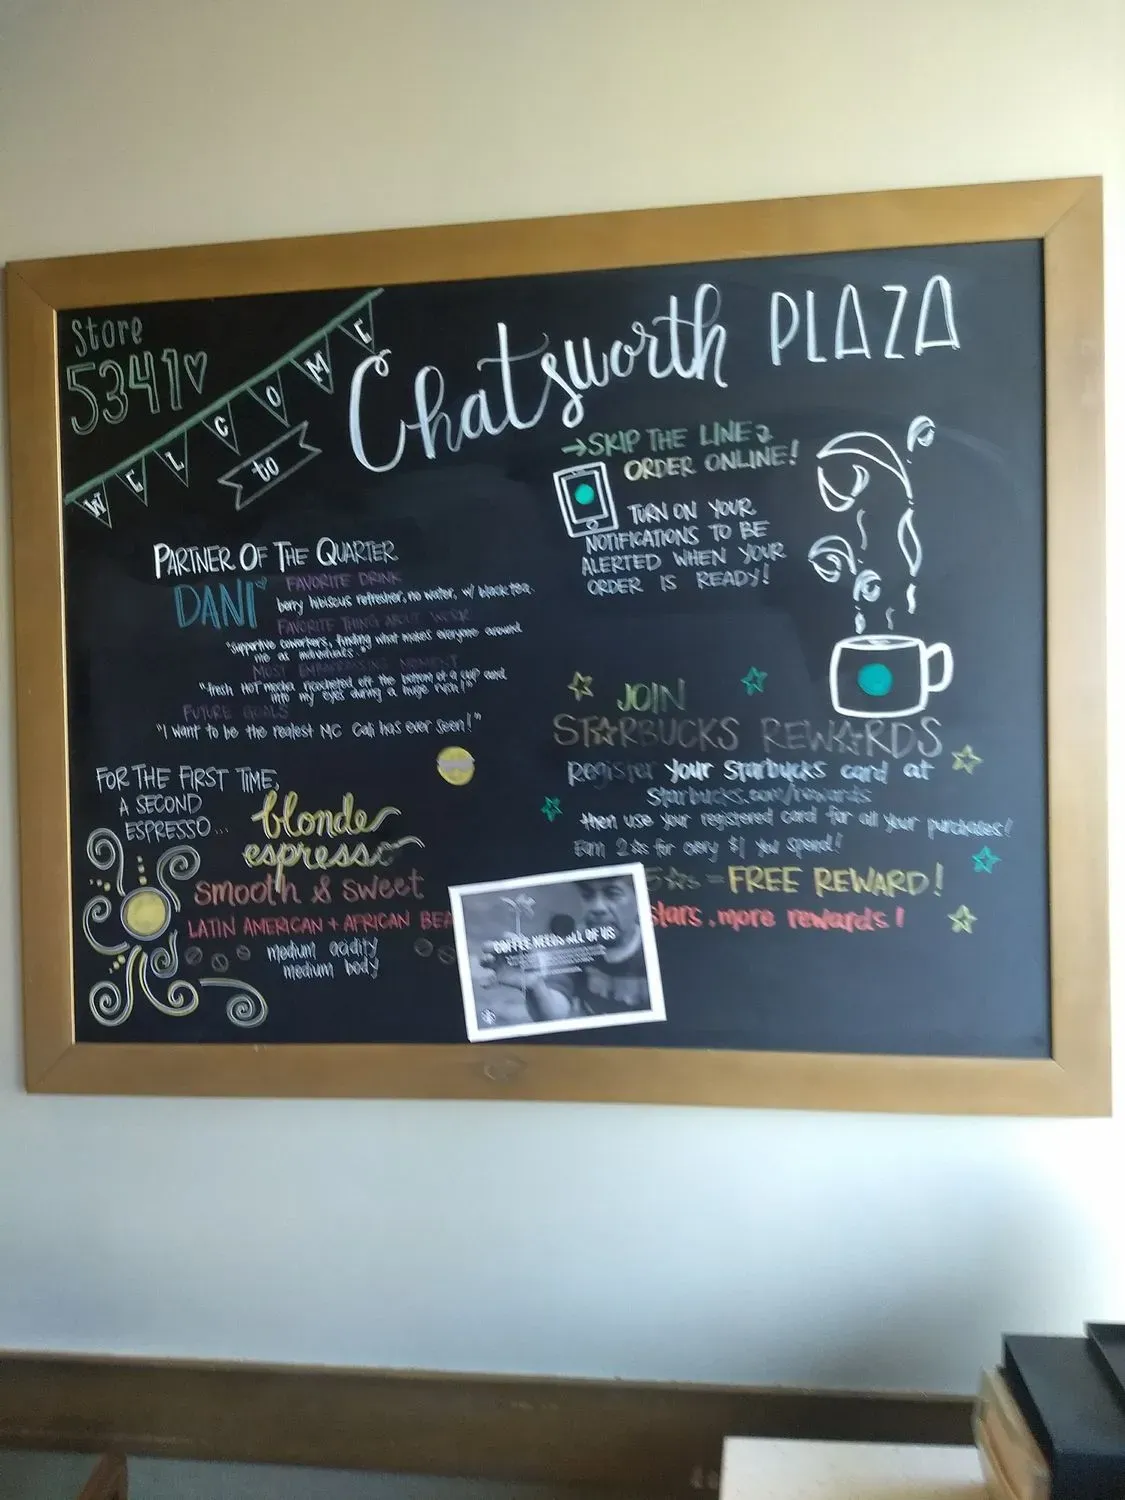 Store
5341
WELCOME
to
Chatsworth PLAZA
→SKIP THE LINE
ORDER ONLINE!
TURN ON YOUR
NOTIFICATIONS TO BE
ALERTED WHEN YOUR
ORDER IS READY!
PARTNER OF THE QUARTER
DANI
FAVORITE DRINK
berry hibiscus refresher, no water, w/ black tea.
FAVORITE THING ABOUT WORK
"supportive coworkers, finding what makes everyone around
me as individuals"
MOST EMBARRASSING MOMENT
"fresh HOT mocha ricocheted off the bottom of a cup and
into my eyes during a huge rush!"
FUTURE GOALS
"I want to be the realest MC Cali has ever seen!"
FOR THE FIRST TIME,
A SECOND
ESPRESSO...
blonde
espresso
smooth & sweet
LATIN AMERICAN + AFRICAN BEA
medium acidity
medium body
JOIN
STARBUCKS REWARDS
Register your Starbucks card at
Starbucks.com/rewards
then use your registered card for all your purchases!
Earn 2☆s for every $1 you spend!
= FREE REWARD!
stars, more rewards!
COFFEE NEEDS ALL OF US